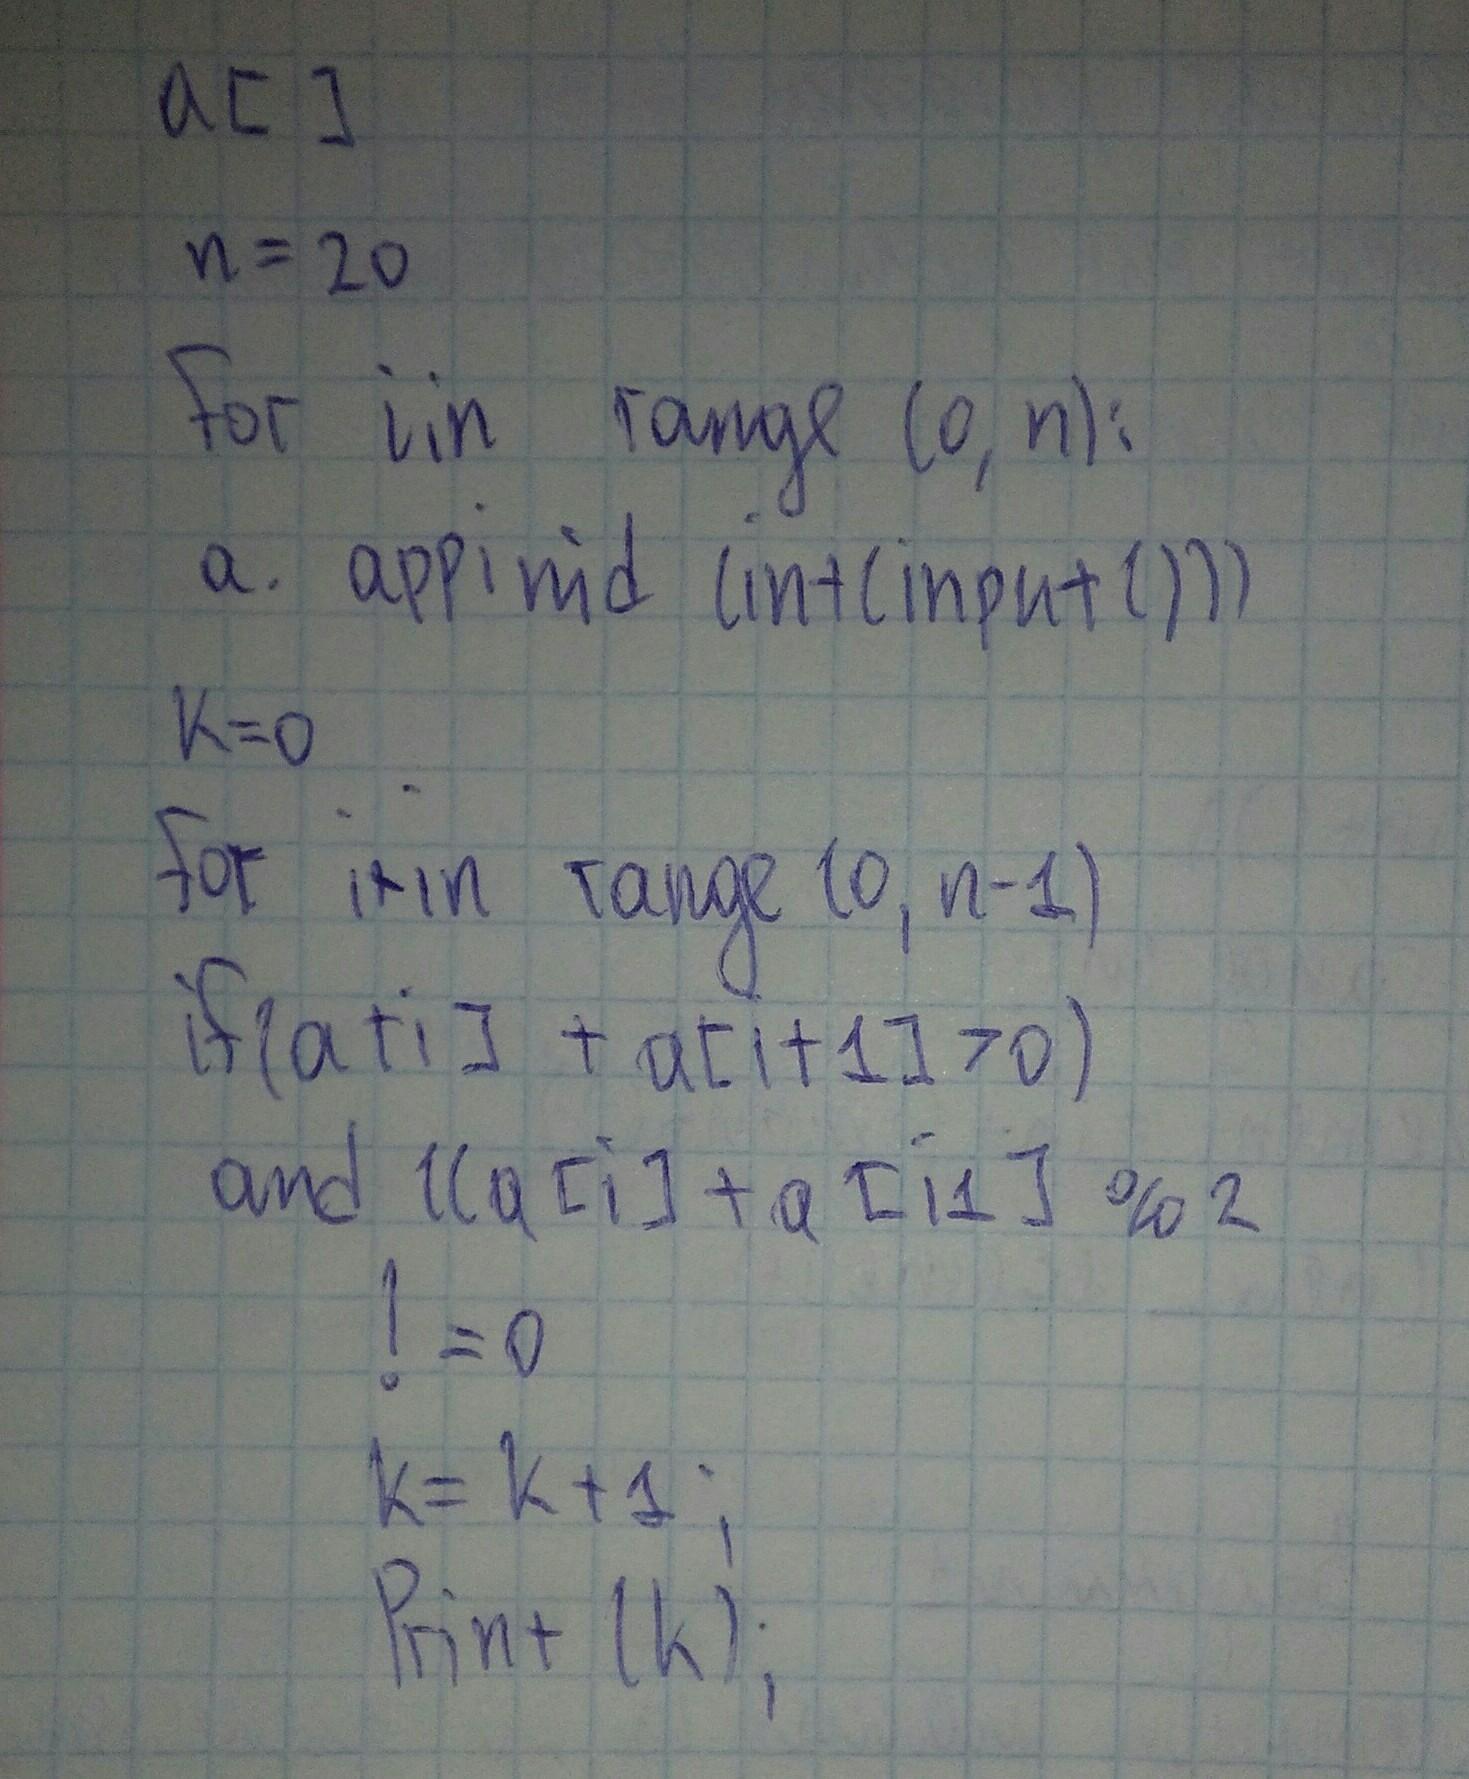 a[ ]
n=20
For iin range (0, n):
a. appinid (int(input()))
K=0
For i in range (0, n-1)
if(a[i] + a[i+1]>0)
and ((a[i]+a[i1] %2
!=0
k=k+1;
Print (k);